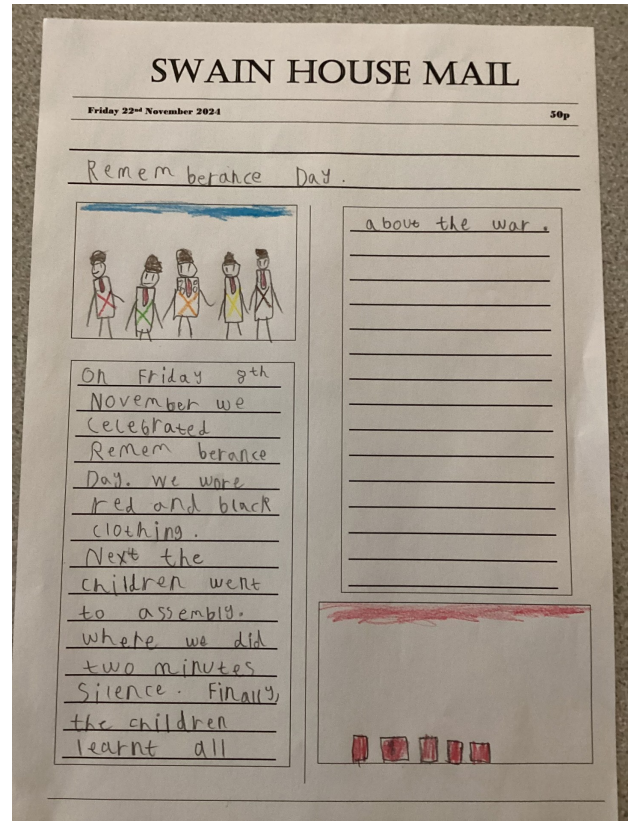 SWAIN HOUSE MAIL
Friday 22nd November 2024 50p
Rememberance Day.
On Friday 8th
November we
celebrated
Rememberance
Day. We wore
red and black
clothing.
Next the
children went
to assembly.
where we did
two minutes
silence. Finally,
the children
learnt all
about the war.